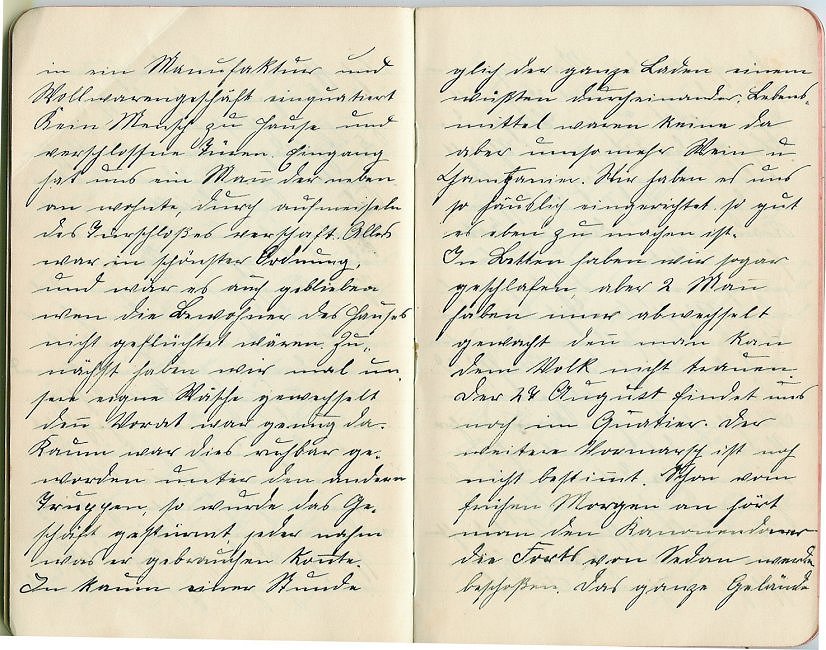 in ein Manufaktur und
Wollwarengeschäft einquatiert
Kein Mensch zu Hause und
verschlossne Türen. Eingang
hat uns ein Mañ der neben
an wohnte, durch aufmeiseln
des Türschloßes verschaft. Alles
war in schönster Ordnung,
und wär es auch geblieben
wen die Bewohner des Hauses
nicht geflüchtet wären. Zu„
nächst haben wir mal un„
sere eigne Wäsche gewechselt
deñ Vorat war genug da.
Kaum war dies ruhbar ge„
worden unter den andern
Truppen, so wurde das Ge„
schäft gestürmt, jeder nahm
was er gebrauchen koñte.
In kaum einer Stunde
glich der ganze Laden einem
wüsten durcheinander. Lebens„
mittel waren keine da
aber umsomehr Wein u.
Wir haben es uns
so häuslich eingerichtet so gut
es eben zu machen ist.
In Betten haben wir sogar
geschlafen aber 2 Man
haben imer abwechselt
gewacht deñ man kan
dem Volk nicht trauen.
Der 28 August findet uns
noch im Quatier. Der
weitere Vormarsch ist noch
nicht bestimt. Schon vom
frühen Morgen an hört
man den Kanonendoner
die Forts von Sedan werde
beschoßen. Das ganze Gelände